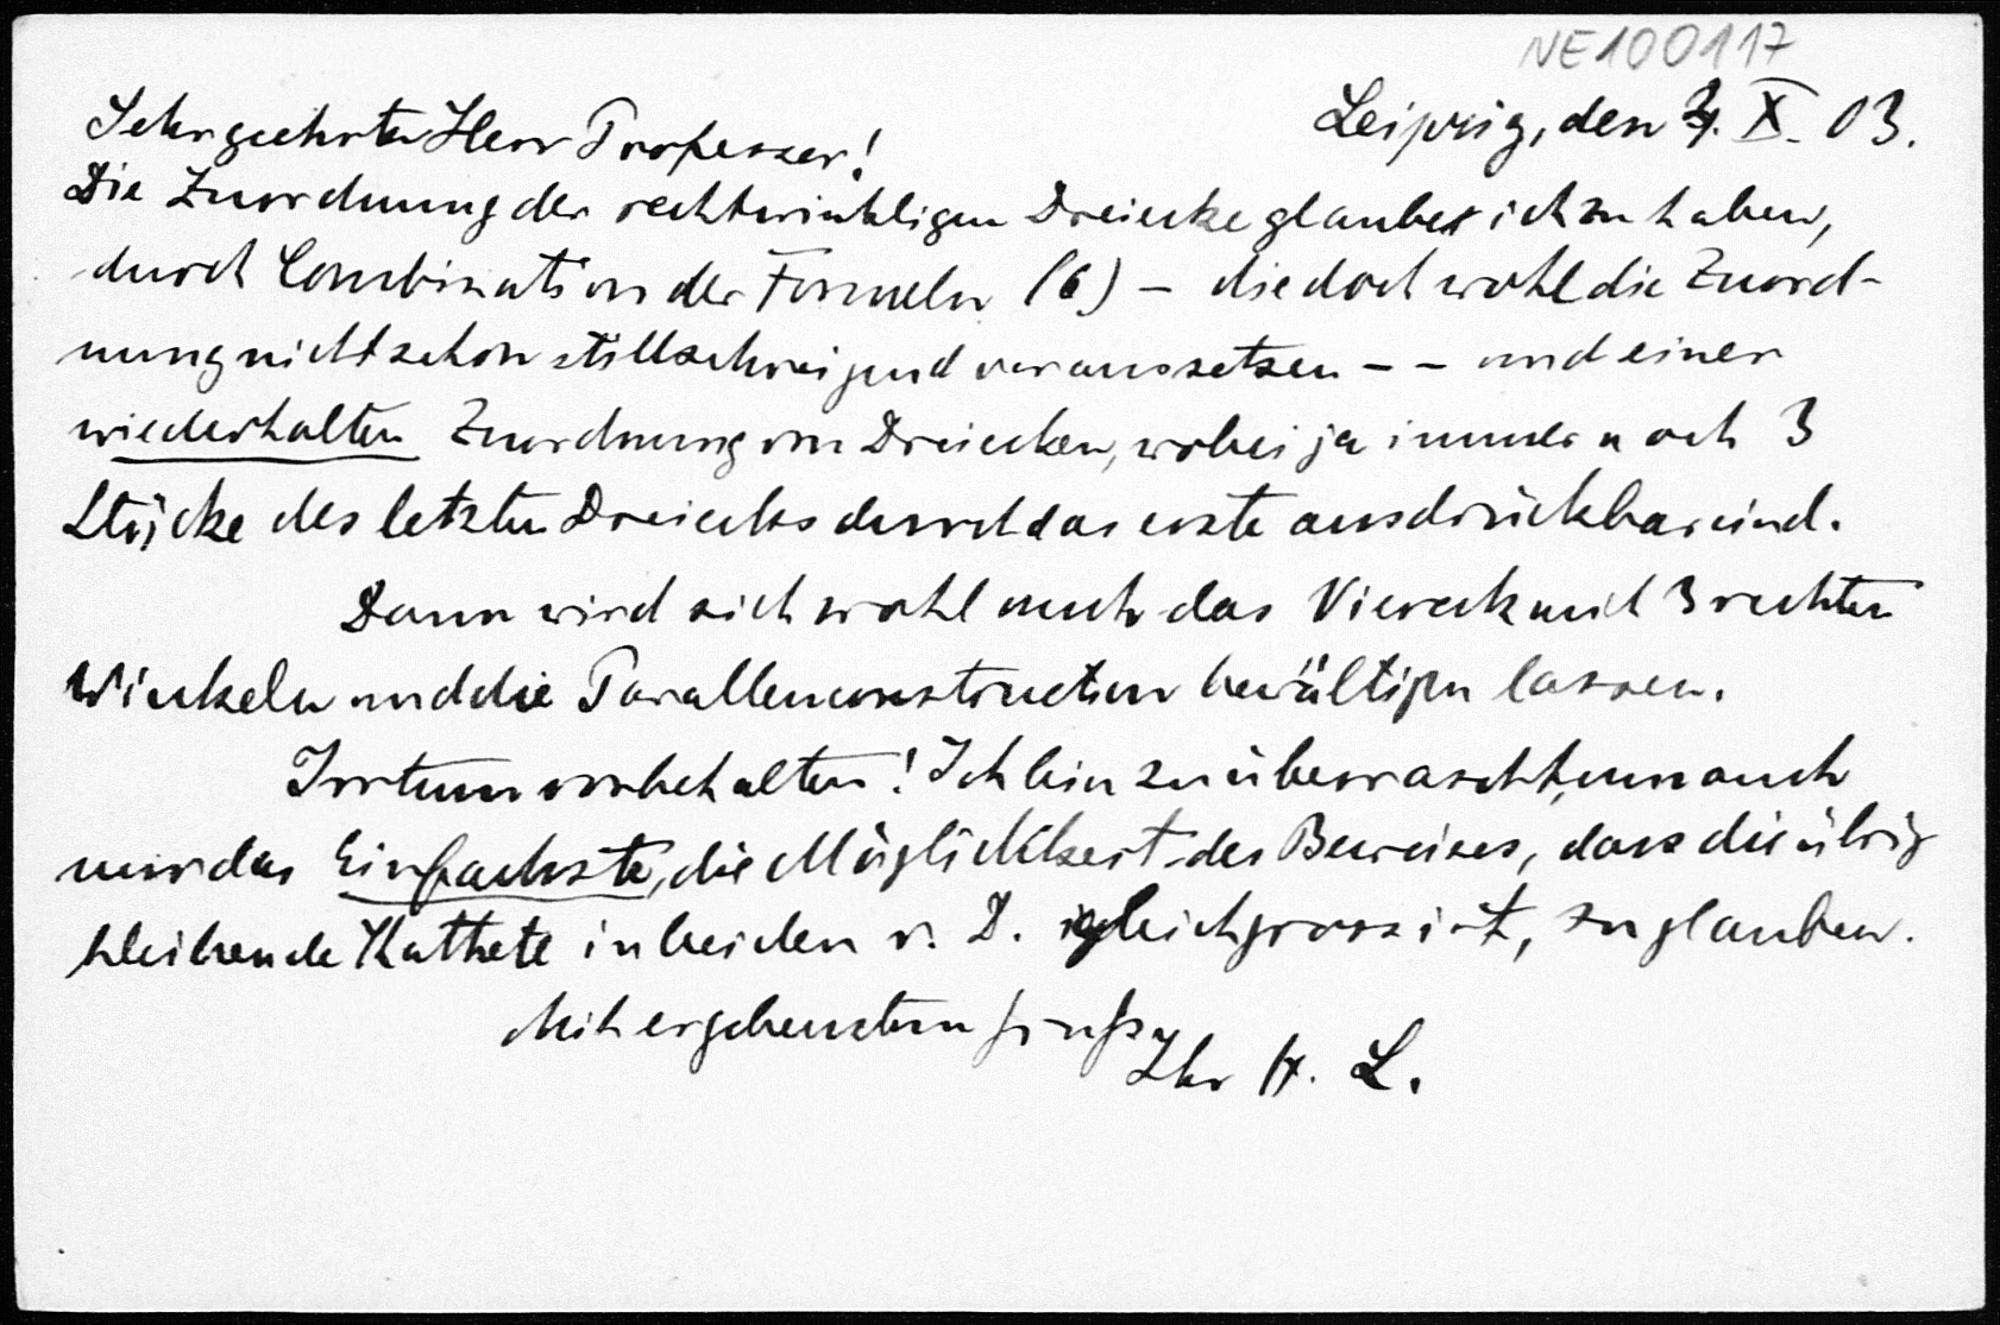 NE100117
Leipzig, den 3. X. 03.
Sehr geehrter Herr Professor!
Die Zuordnung der rechtwinkligen Dreiecke glaube ich zu haben,
durch Combination der Formeln (6) – die doch wohl die Zuord-
nung nicht schon stillschweigend voraussetzen – – und einer
wiederholten Zuordnung von Dreiecken, wobei ja immer noch 3
Stücke des letzten Dreiecks durch das erste ausdrückbar sind.
Dann wird sich wohl auch das Viereck mit 3 rechten
Winkeln und die Parallenconstruction bewältigen lassen.
Irrtum vorbehalten! Ich bin zu überrascht, um auch
nur das Einfachste, die Möglichkeit des Beweises, dass die übrig
bleibende Kathete in beiden r. D. gleich gross ist, zu glauben.
Mit ergebenstem Gruss
Ihr H. L.